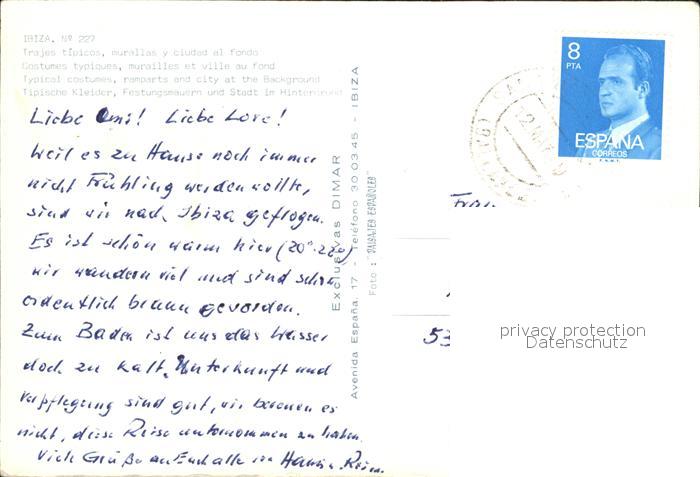 IBIZA. Nº 227
Trajes típicos, murallas y ciudad al fondo
Costumes typiques, murailles et ville au fond
Typical costumes, ramparts and city at the Background
Tipische Kleider, Festungsmauern und Stadt im Hintergrund
Liebe Omi! Liebe Lore!
Weil es zu Hause noch immer
nicht Frühling werden wollte,
sind wir nach Ibiza geflogen.
Es ist schön warm hier (20°-22°)
wir wandern viel und sind schon
ordentlich braun geworden.
Zum Baden ist uns das Wasser
doch zu kalt. Unterkunft und
Verpflegung sind gut, wir bereuen es
nicht, diese Reise unternommen zu haben.
Viele Grüße an Euch alle von
Exclusivas DIMAR
Avenida España, 17 - Teléfono 30 03 45 - IBIZA
Foto: PAISAJES ESPAÑOLES
8
PTA
ESPAÑA
CORREOS
F.N.M.T.
53
privacy protection
Datenschutz